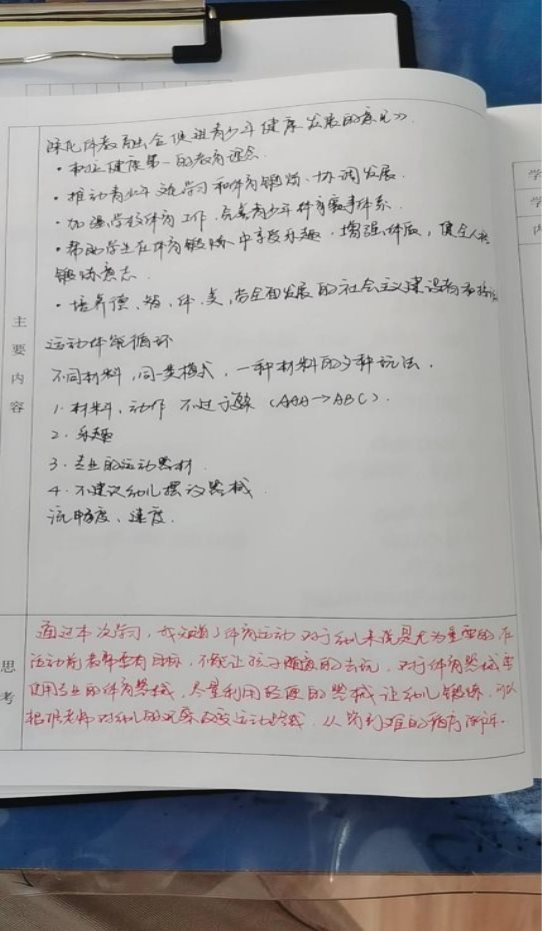 深化体教融合促进青少年健康发展的意见》
·树立健康第一的教育理念.
·推动青少年文化学习和体育锻炼、协调发展.
·加强学校体育工作,完善青少年体育赛事体系.
·帮助学生在体育锻炼中享受乐趣.增强体质,健全人格
锻炼意志.
·培养德、智、体、美、劳全面发展的社会主义建设者和接班
运动体能循环
不同材料,同一类模式,一种材料的多种玩法.
1.材料、动作 不过于复杂(AAA→ABC).
2.乐趣
3.专业的运动器材.
4.不建议幼儿摆放器械.
流畅度、速度.
主要内容
通过本次学习,我知道了体育运动对于幼儿来说是尤为重要的,在
运动前老师要有目标,不能让孩子随意的去玩,对于体育器械要
使用专业的体育器械,尽量利用轻便的器械让幼儿锻炼,可以
根据老师对幼儿的观察改变运动 ,从易到难的循序渐进.
思考
学
学
内